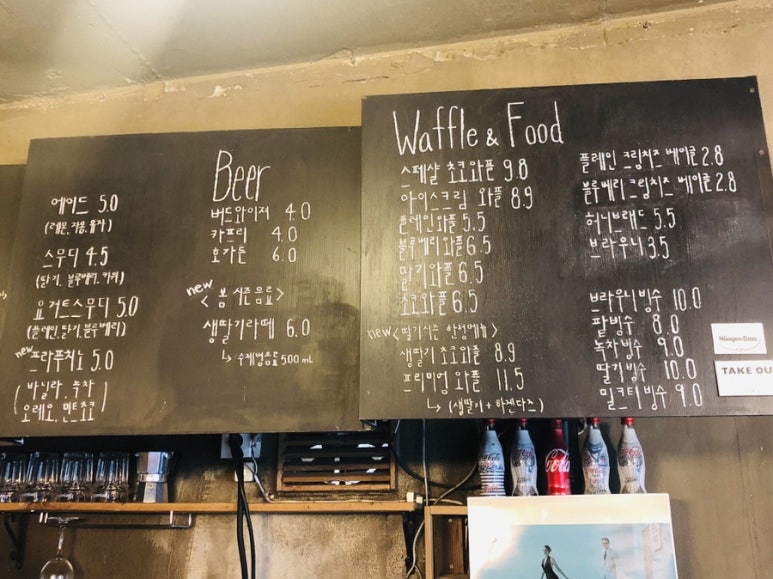 에이드 5.0
(레몬, 자몽, 딸기)
스무디 4.5
(딸기, 블루베리, 키위)
요거트스무디 5.0
(플레인, 딸기, 블루베리)
new 프라푸치노 5.0
(바닐라, 녹차
오레오, 민트초코)
Beer
버드와이저 4.0
카프리 4.0
호가든 6.0
new
<봄 시즌 음료>
생딸기라떼 6.0
↳ 수제병음료 500mL
Waffle & Food
스페샬 초코와플 9.8
아이스크림 와플 8.9
플레인와플 5.5
블루베리와플 6.5
딸기와플 6.5
초코와플 6.5
new <딸기시즌 한정메뉴>
생딸기 초코와플 8.9
프리미엄 와플 11.5
↳ (생딸기 + 하겐다즈)
플레인 크림치즈 베이글 2.8
블루베리 크림치즈 베이글 2.8
허니브래드 5.5
브라우니 3.5
브라우니빙수 10.0
팥빙수 8.0
녹차빙수 9.0
딸기빙수 10.0
밀크티빙수 9.0
Häagen-Dazs
TAKE OU